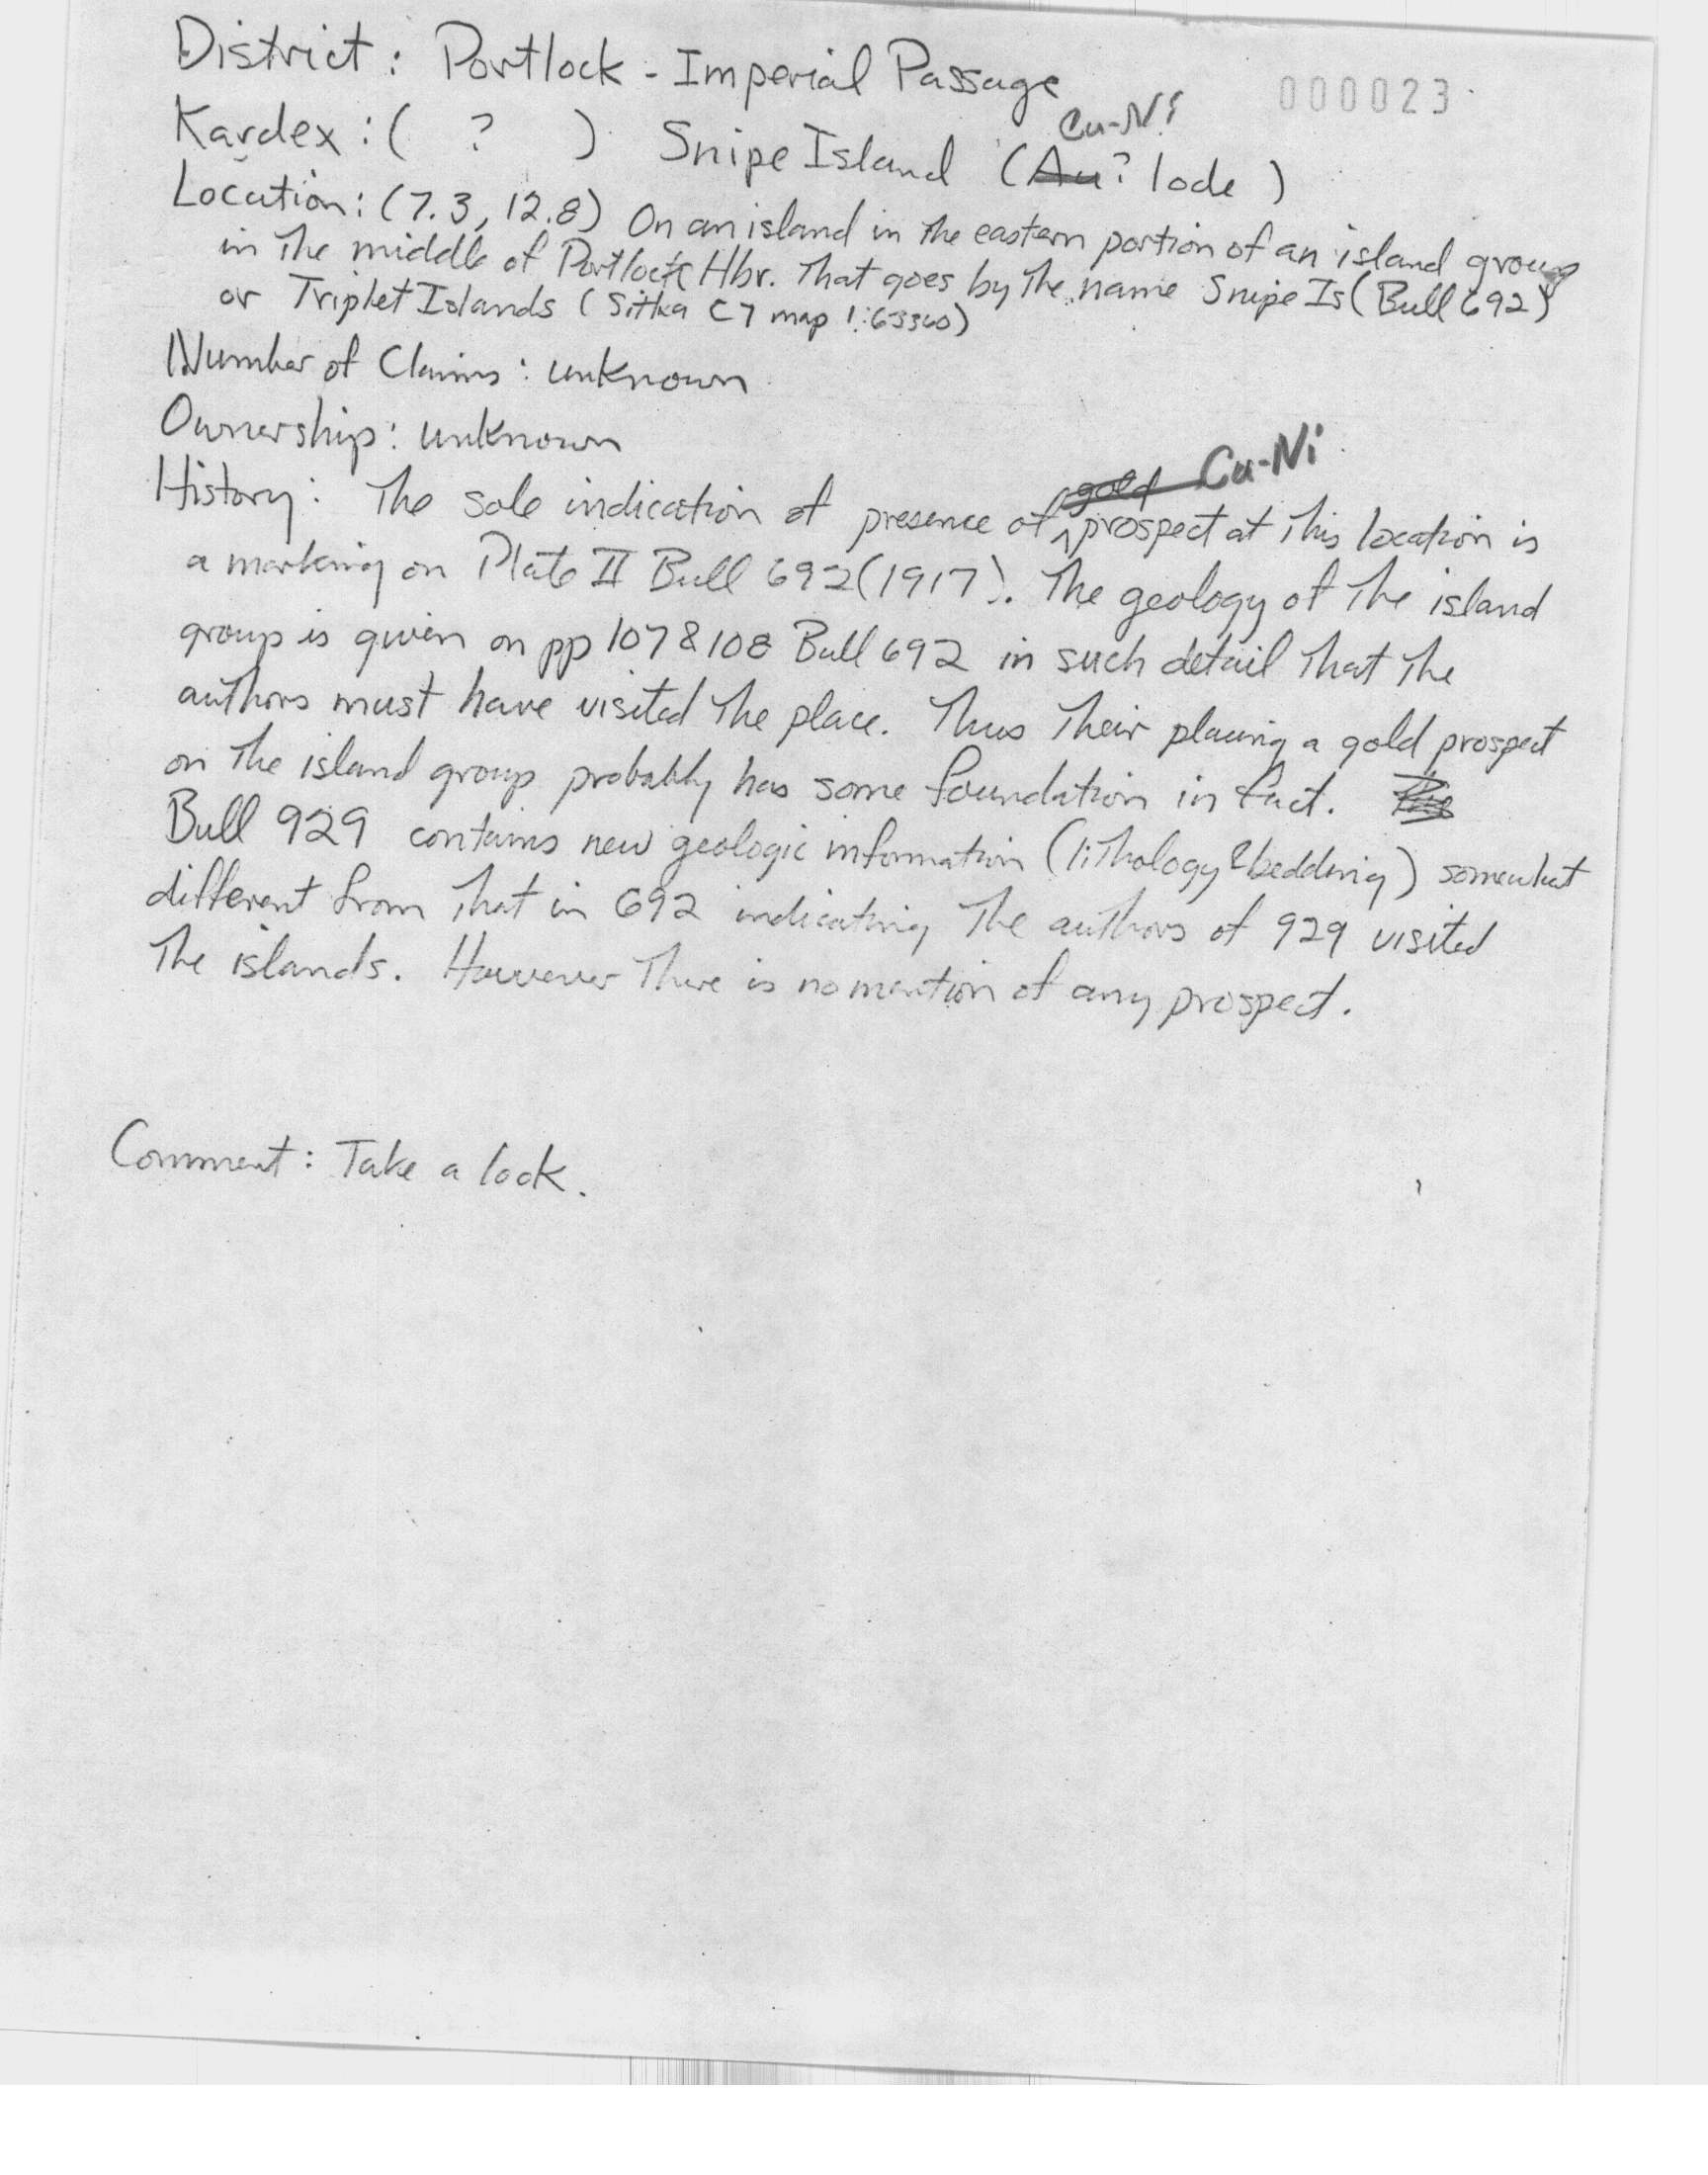 District: Portlock - Imperial Passage
000023
Cu-Ni
Kardex: ( ? ) Snipe Island (Au? lode)
Location: (7.3, 12.8) On an island in the eastern portion of an island group
in the middle of Portlock Hbr. that goes by the name Snipe Is (Bull 692)
or Triplet Islands (Sitka C7 map 1:63360)
Number of Claims: unknown
Ownership: unknown
gold Cu-Ni
History: The sole indication of presence of prospect at this location is
a marking on Plate II Bull 692 (1917). The geology of the island
group is given on pp 107 & 108 Bull 692 in such detail that the
authors must have visited the place. Thus their placing a gold prospect
on the island group probably has some foundation in fact. The
Bull 929 contains new geologic information (lithology & bedding) somewhat
different from that in 692 indicating the authors of 929 visited
the islands. However there is no mention of any prospect.
Comment: Take a look.